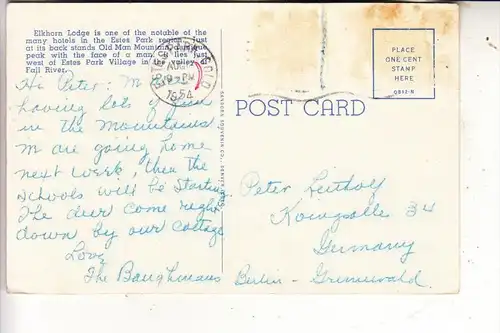 Elkhorn Lodge is one of the notable of the
many hotels in the Estes Park region. Just
at its back stands Old Man Mountain,
peak with the face of a man. lies just
west of Estes Park Village in the valley of
Fall River.
AUG
PM
1954
Hi Peter:
having lots of fun
in the Mountains
are going home
next week, then the
schools will be starting
The deer come right
down by our cottage
Love
The Baughmans
SANBORN SOUVENIR CO., DENVER, COLO.
POST CARD
PLACE
ONE CENT
STAMP
HERE
Peter
34
Germany
Berlin -